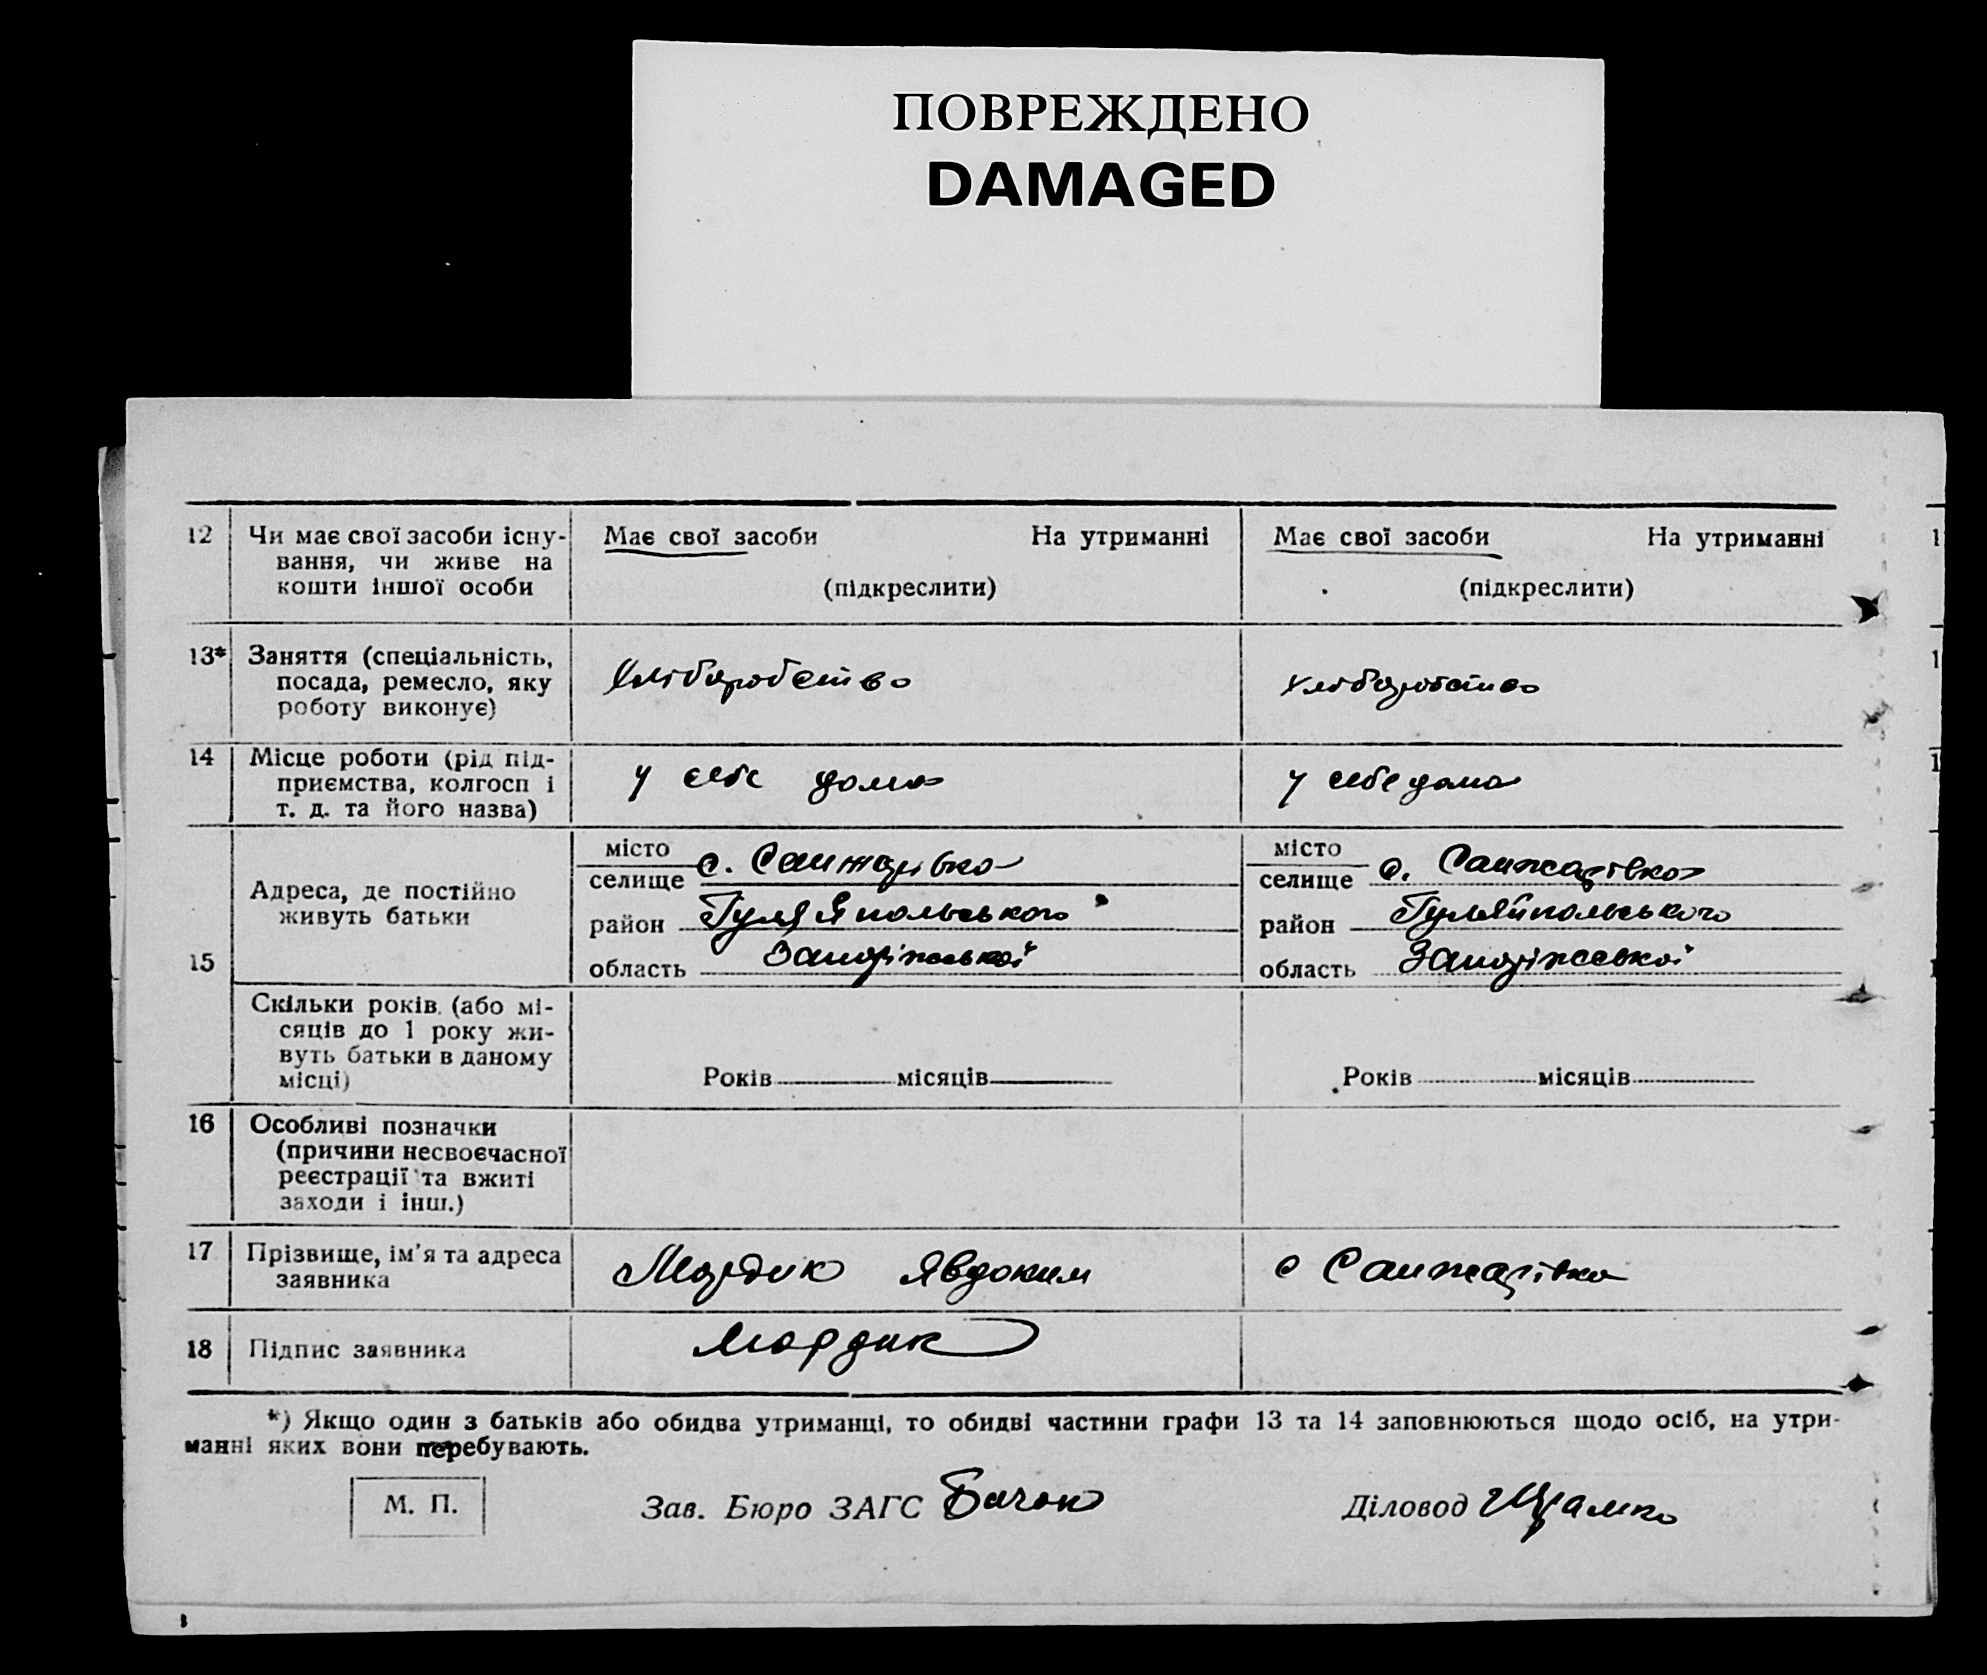 ПОВРЕЖДЕНО
DAMAGED
12 Чи має свої засоби існу-
вання, чи живе на
кошти іншої особи
Має свої засоби На утриманні
(підкреслити)
Має свої засоби На утриманні
(підкреслити)
13* Заняття (спеціальність,
посада, ремесло, яку
роботу виконує)
Хліборобство
хліборобство
14 Місце роботи (рід під-
приємства, колгосп і
т. д. та його назва)
у себе дома
у себе дома
15
Адреса, де постійно
живуть батьки
місто
селище с. Санжарівка
район Гуляйпольського
область Запоріжської
місто
селище с. Санжарівка
район Гуляйпольського
область Запоріжської
Скільки років (або мі-
сяців до 1 року жи-
вуть батьки в даному
місці)
Років місяців
Років місяців
16 Особливі позначки
(причини несвоєчасної
реєстрації та вжиті
заходи і інш.)
17 Прізвище, ім'я та адреса
заявника
Мордик Явдоким
с Санжарівка
18 Підпис заявника
Мордик
*) Якщо один з батьків або обидва утриманці, то обидві частини графи 13 та 14 заповнюються щодо осіб, на утри-
манні яких вони перебувають.
М. П.
Зав. Бюро ЗАГС Бачок
Діловод